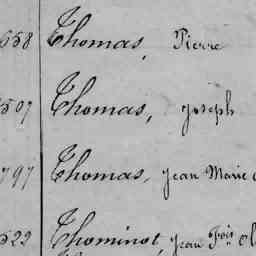 658 Thomas, Pierre
507 Thomas, Joseph
797 Thomas, Jean Marie
522 Thominot, Jean Fois